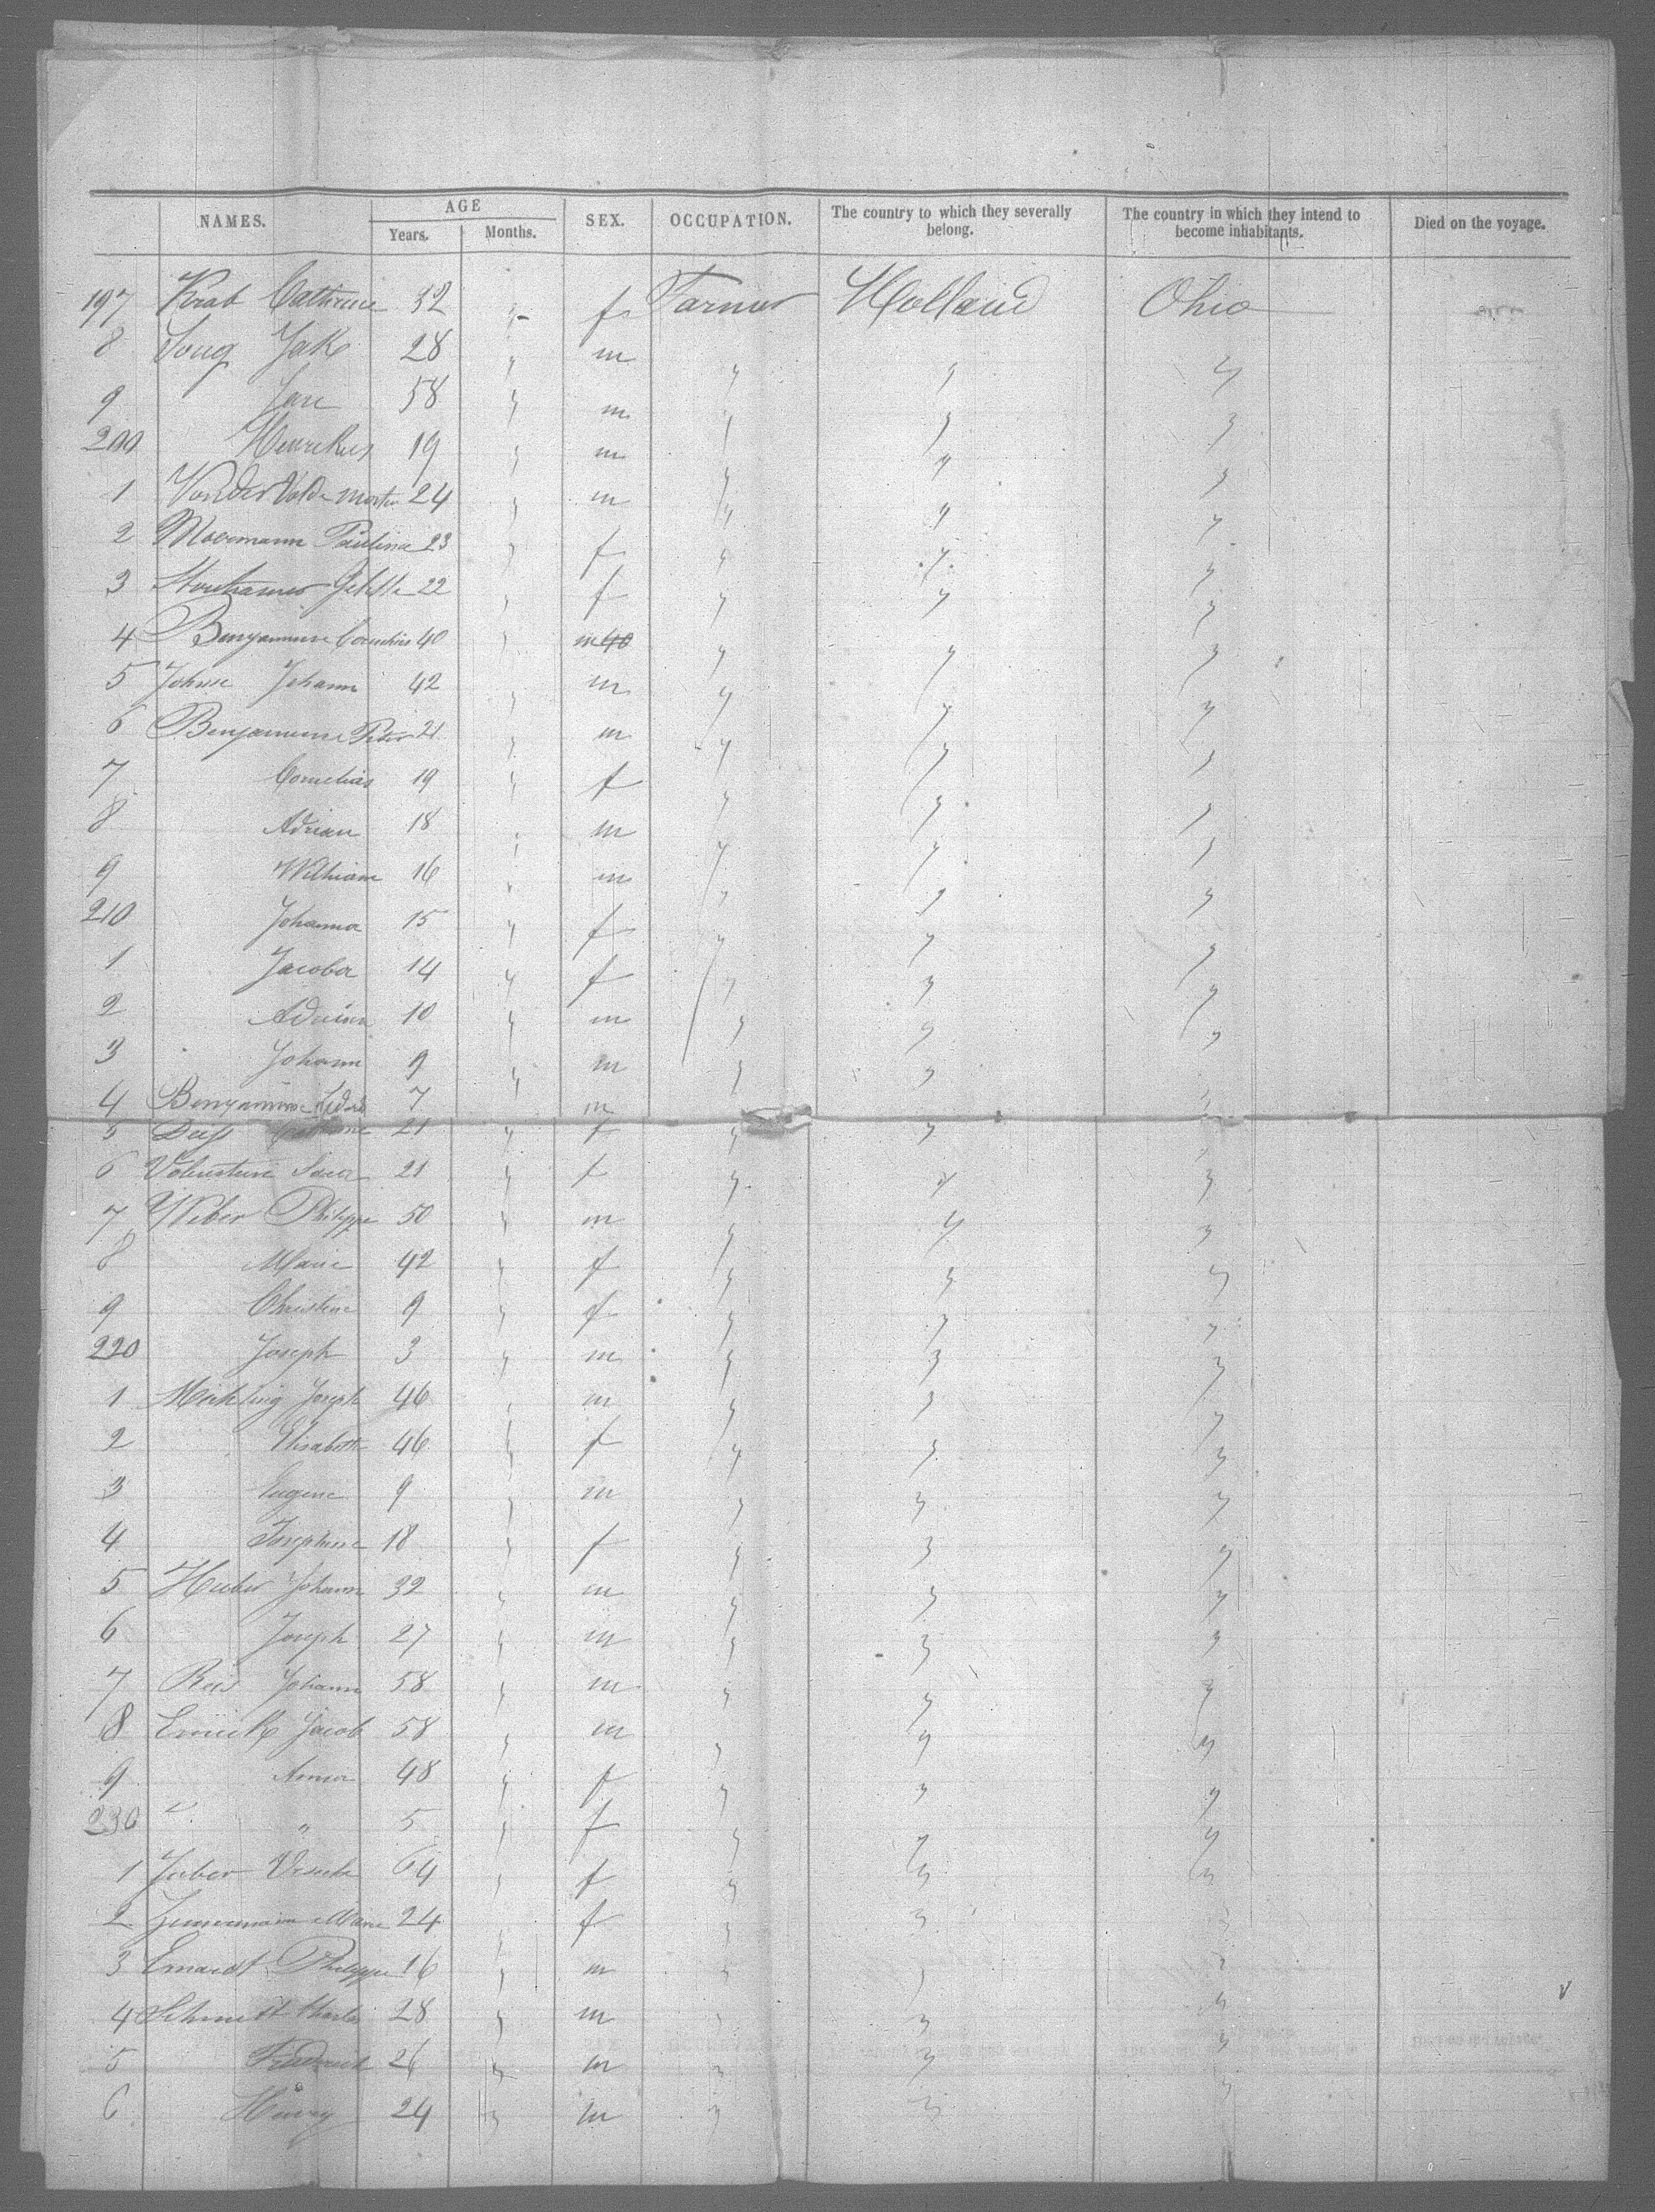 NAMES. AGE SEX. OCCUPATION. The country to which they severally belong. The country in which they intend to become inhabitants. Died on the voyage.
Years. Months.
197 Krab Catherine 32 " f Farmer Holland Ohio
8 Jak 28 " m " " "
9 Jan 58 " m " " "
200 19 " m " " "
1 24 " m " " "
2 Moormann Paulina 23 " f " " "
3 22 " f " " "
4 Benjaminse Cornelius 40 " m 40 " " "
5 Johnse Johann 42 " m " " "
6 Benjaminse Peter 21 " m " " "
7 Cornelius 19 " f " " "
8 Adrian 18 " m " " "
9 William 16 " m " " "
210 Johanna 15 " f " " "
1 Jacoba 14 " f " " "
2 Adrian 10 " m " " "
3 Johann 9 " m " " "
4 Benjaminse 7 m " " "
5 21 " f " " "
6 21 " f " " "
7 Weber Philippe 50 " m " " "
8 Marie 42 " f " " "
9 Christine 9 " f " " "
220 Joseph 3 " m " " "
1 Joseph 46 " m " " "
2 Elisabeth 46 " f " " "
3 Eugene 9 " m " " "
4 Josephine 18 " f " " "
5 Huber Johann 32 " m " " "
6 Joseph 27 " m " " "
7 Reis Johann 58 " m " " "
8 Emick Jacob 58 " m " " "
9 Anna 48 " f " " "
230 " " 5 " f " " "
1 64 " f " " "
2 Marie 24 " f " " "
3 Philippe 16 " m " " "
4 Schmidt Charles 28 " m " " "
5 Frederick 26 " m " " "
6 Henry 24 " m " " "